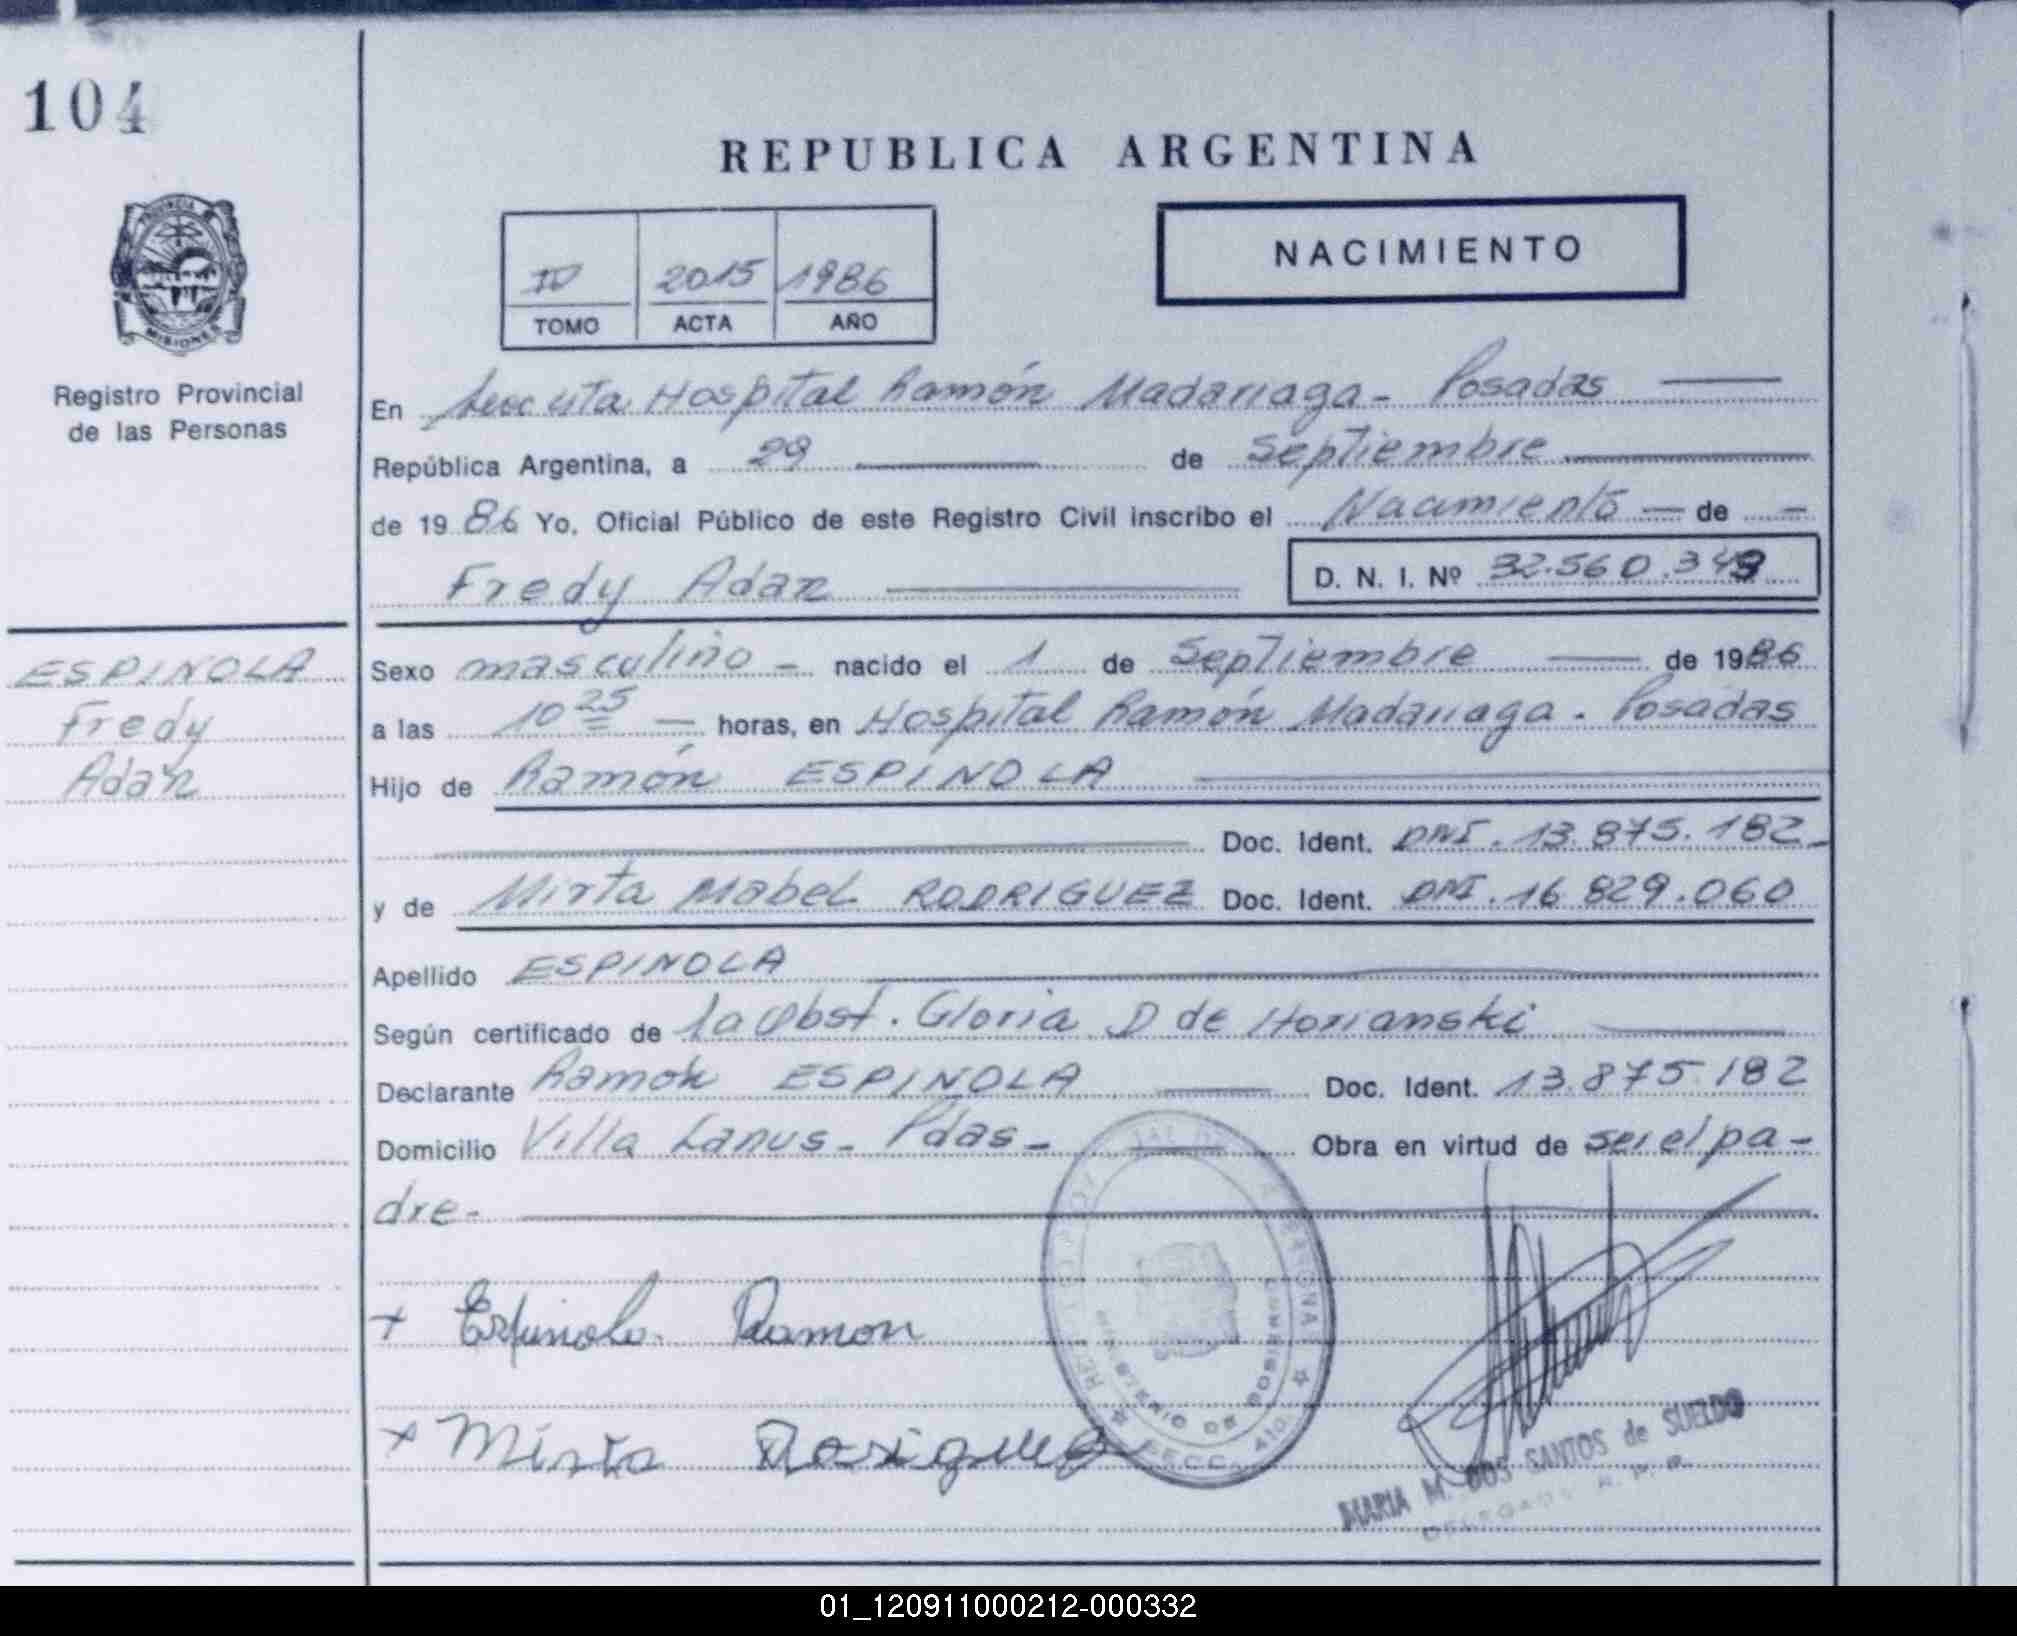 104
REPUBLICA ARGENTINA
PROVINCIA
MISIONES
Registro Provincial
de las Personas
IV 2015 1986
TOMO ACTA AÑO
NACIMIENTO
En Hospital Ramón Madariaga - Posadas
República Argentina, a 29 de Septiembre
de 1986 Yo, Oficial Público de este Registro Civil inscribo el Nacimiento de
Fredy Adan
D. N. I. Nº 32.560.349
ESPINOLA
Fredy
Adan
Sexo masculino - nacido el 1 de Septiembre de 1986
a las 10 25 horas, en Hospital Ramón Madariaga - Posadas
Hijo de Ramón ESPINOLA
Doc. Ident. DNI. 13.875.182-
y de Mirta Mabel RODRIGUEZ Doc. Ident. DNI. 16 829.060
Apellido ESPINOLA
Según certificado de la Obst. Gloria D de Horianski
Declarante Ramon ESPINOLA Doc. Ident. 13.875.182
Domicilio Villa Lanus - Pdas - Obra en virtud de ser el pa-
dre-
+ Espinola Ramon
+ Mirta Rosiguez
MINISTERIO DE GOBIERNO
SECC. 410
MARIA M. DOS SANTOS de SUELDO
DELEGADA R. P. P.
01_120911000212-000332